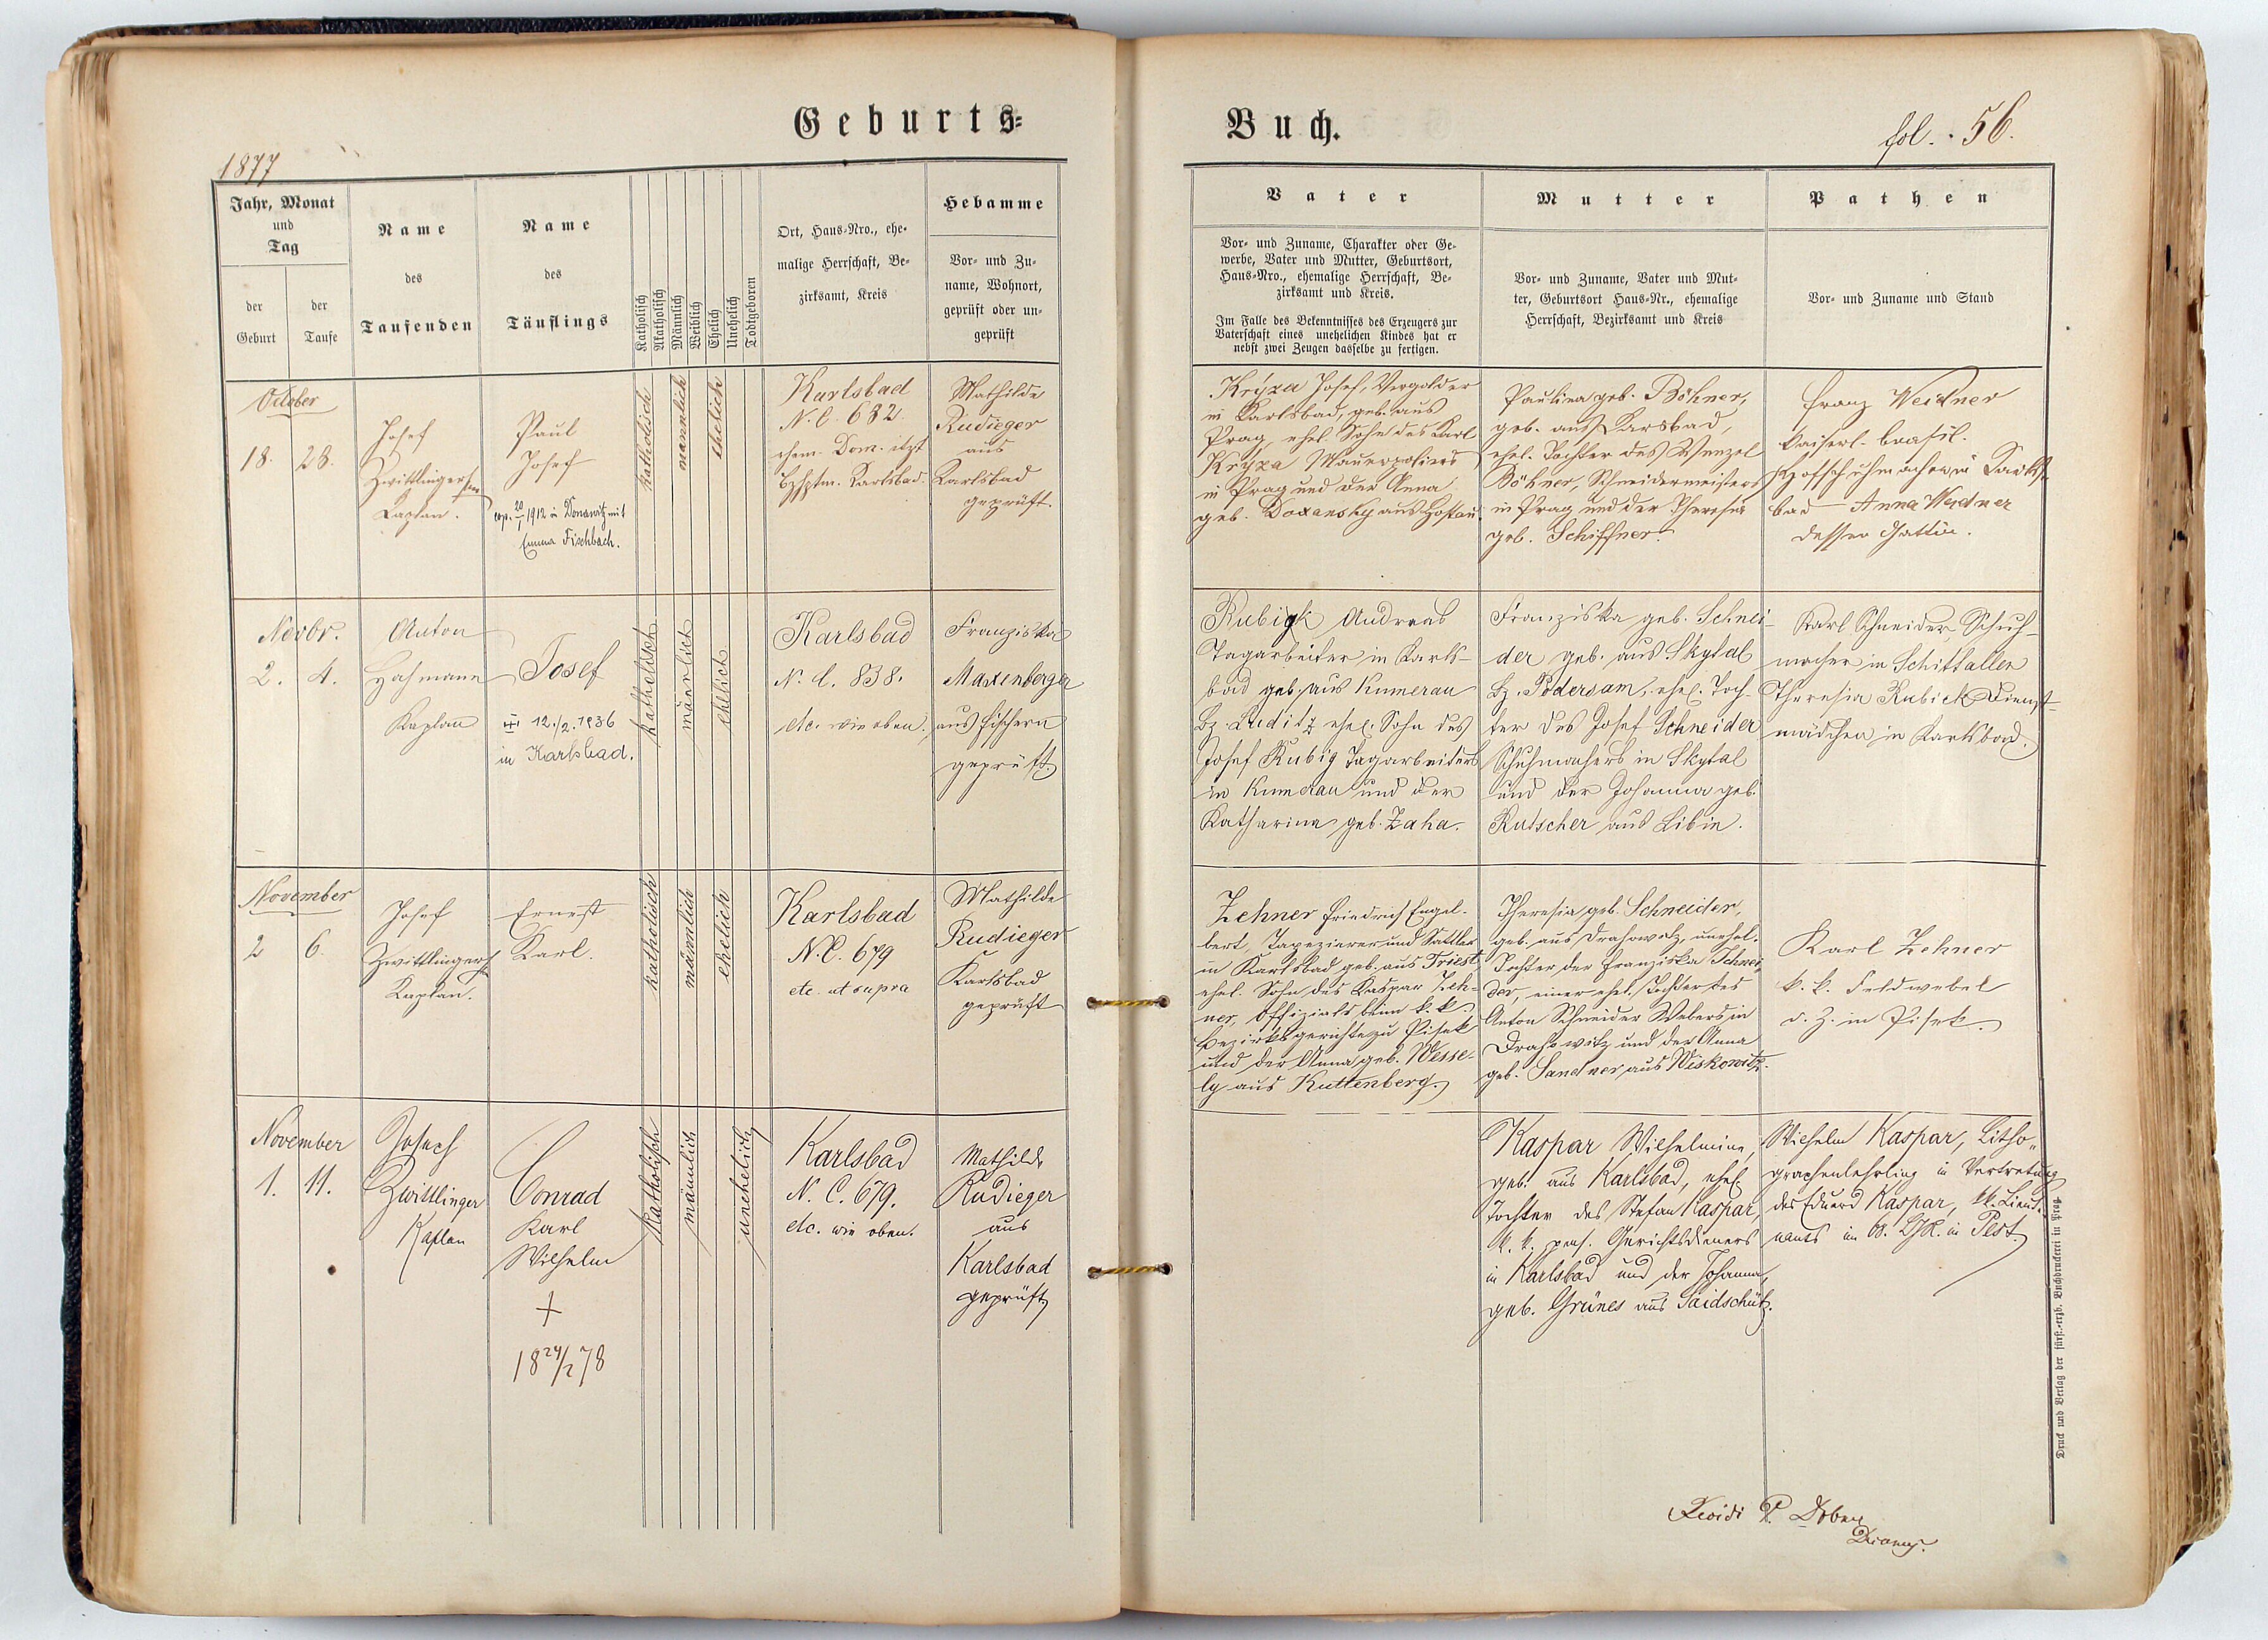 Geburts=
1877
Jahr, Monat
und
Tag
der
Geburt
der
Taufe
Name
des
Taufenden
Name
des
Täuflings
Katholisch
Akatholisch
Männlich
Weiblich
Ehelich
Unehelich
Todtgeboren
Ort, Haus-Nro., ehe-
malige Herrschaft, Be-
zirksamt, Kreis
Hebamme
Vor- und Zu-
name, Wohnort,
geprüft oder un-
geprüft
October
18. 28.
Josef
Zwittlinger
Kaplan.
Paul
Josef
cop. 20/ 1912 in Donawitz mit
Emma Fischbach.
katholisch
männlich
ehelich
Karlsbad
N. C. 682.
ehem. Dom. itzt
Bzhptm. Karlsbad.
Mathilde
Rudieger
aus
Karlsbad
geprüft.
Novbr.
2. 4.
Anton
Hahmann
Kaplan
Josef
12./2. 1936
in Karlsbad.
katholisch
männlich
ehelich
Karlsbad
N. C. 838.
etc. wie oben.
Franziska
Maxenberger
aus Fischern
geprüft
November
2 6.
Josef
Zwittlinger
Kaplan.
Ernest
Karl.
katholisch
männlich
ehelich
Karlsbad
N.C. 679
etc. ut supra
Mathilde
Rudieger
Karlsbad
geprüft
November
1. 11.
Joseph
Zwittlinger
Kaplan
Conrad
Karl
Wilhelm
+
18 24/2 78
katholisch
männlich
unehelich
Karlsbad
N. C. 679.
etc. wie oben.
Mathilde
Rudieger
aus
Karlsbad
geprüft
Buch.
fol. 56.
Vater
Vor- und Zuname, Charakter oder Ge-
werbe, Vater und Mutter, Geburtsort,
Haus-Nro., ehemalige Herrschaft, Be-
zirksamt und Kreis.
Im Falle des Bekenntnisses des Erzeugers zur
Vaterschaft eines unehelichen Kindes hat er
nebst zwei Zeugen dasselbe zu fertigen.
Mutter
Vor- und Zuname, Vater und Mut-
ter, Geburtsort Haus-Nr., ehemalige
Herrschaft, Bezirksamt und Kreis
Pathen
Vor- und Zuname und Stand
Josef, Vergolder
in Karlsbad, geb. aus
Prag, ehel. Sohn des Karl
Mauerpoliers
in Prag und der Anna
geb. Doxansky aus Hostau.
Paulina geb. Böhner,
geb. aus Karlsbad,
ehel. Tochter des Wenzel
Böhner, Schneidermeisters
in Prag und der Theresia
geb. Schiffner.
Franz Weidner
kaiserl. brasil.
Hofschuhmacher in Karls-
bad Anna Weidner
dessen Gattin.
Rubigk Andreas
Tagarbeiter in Karls-
bad geb. aus Kumerau
Bz. Luditz ehel. Sohn des
Josef Rubig Tagarbeiters
in Kumerau und der
Katharina geb. Zaha.
Franziska geb. Schnei-
der geb. aus Skytal
Bz. Podersam, ehel. Toch-
ter des Josef Schneider
Schuhmachers in Skytal
und der Johanna geb.
Kutscher aus Libin.
Karl Schneider, Schuh-
macher in Schikallen
Theresia Rubick Dienst-
mädchen in Karlsbad.
Zehner Friedrich Engel-
bert, Tapezierer und Sattler
in Karlsbad geb. aus Triest,
ehel. Sohn des Kaspar Zeh-
ner, Offizials beim k.k.
Bezirksgerichte zu Pisek
und der Anna geb. Wesse-
ly aus Kuttenberg.
Theresia geb. Schneider,
geb. aus Drahowitz, unehel.
Tochter der Franziska Schnei-
der, einer ehel. Tochter des
Anton Schneider Webers in
Drahowitz und der Anna
geb. Sandner aus Wiskowitz.
Karl Zehner
k. k. Feldwebel
d. Z. in Pisek.
Kaspar Wilhelmine,
geb. aus Karlsbad, ehel.
Tochter des Stefan Kaspar,
k. k. pens. Gerichtsdieners
in Karlsbad und der Johanna,
geb. Grünes aus Saidschütz.
Wilhelm Kaspar, Litho-
graphenlehrling in Vertretung
des Eduard Kaspar, kk. Lieut-
nants im 68. in Pest.
Druck und Verlag der fürst.-erzb. Buchdruckerei in Prag.